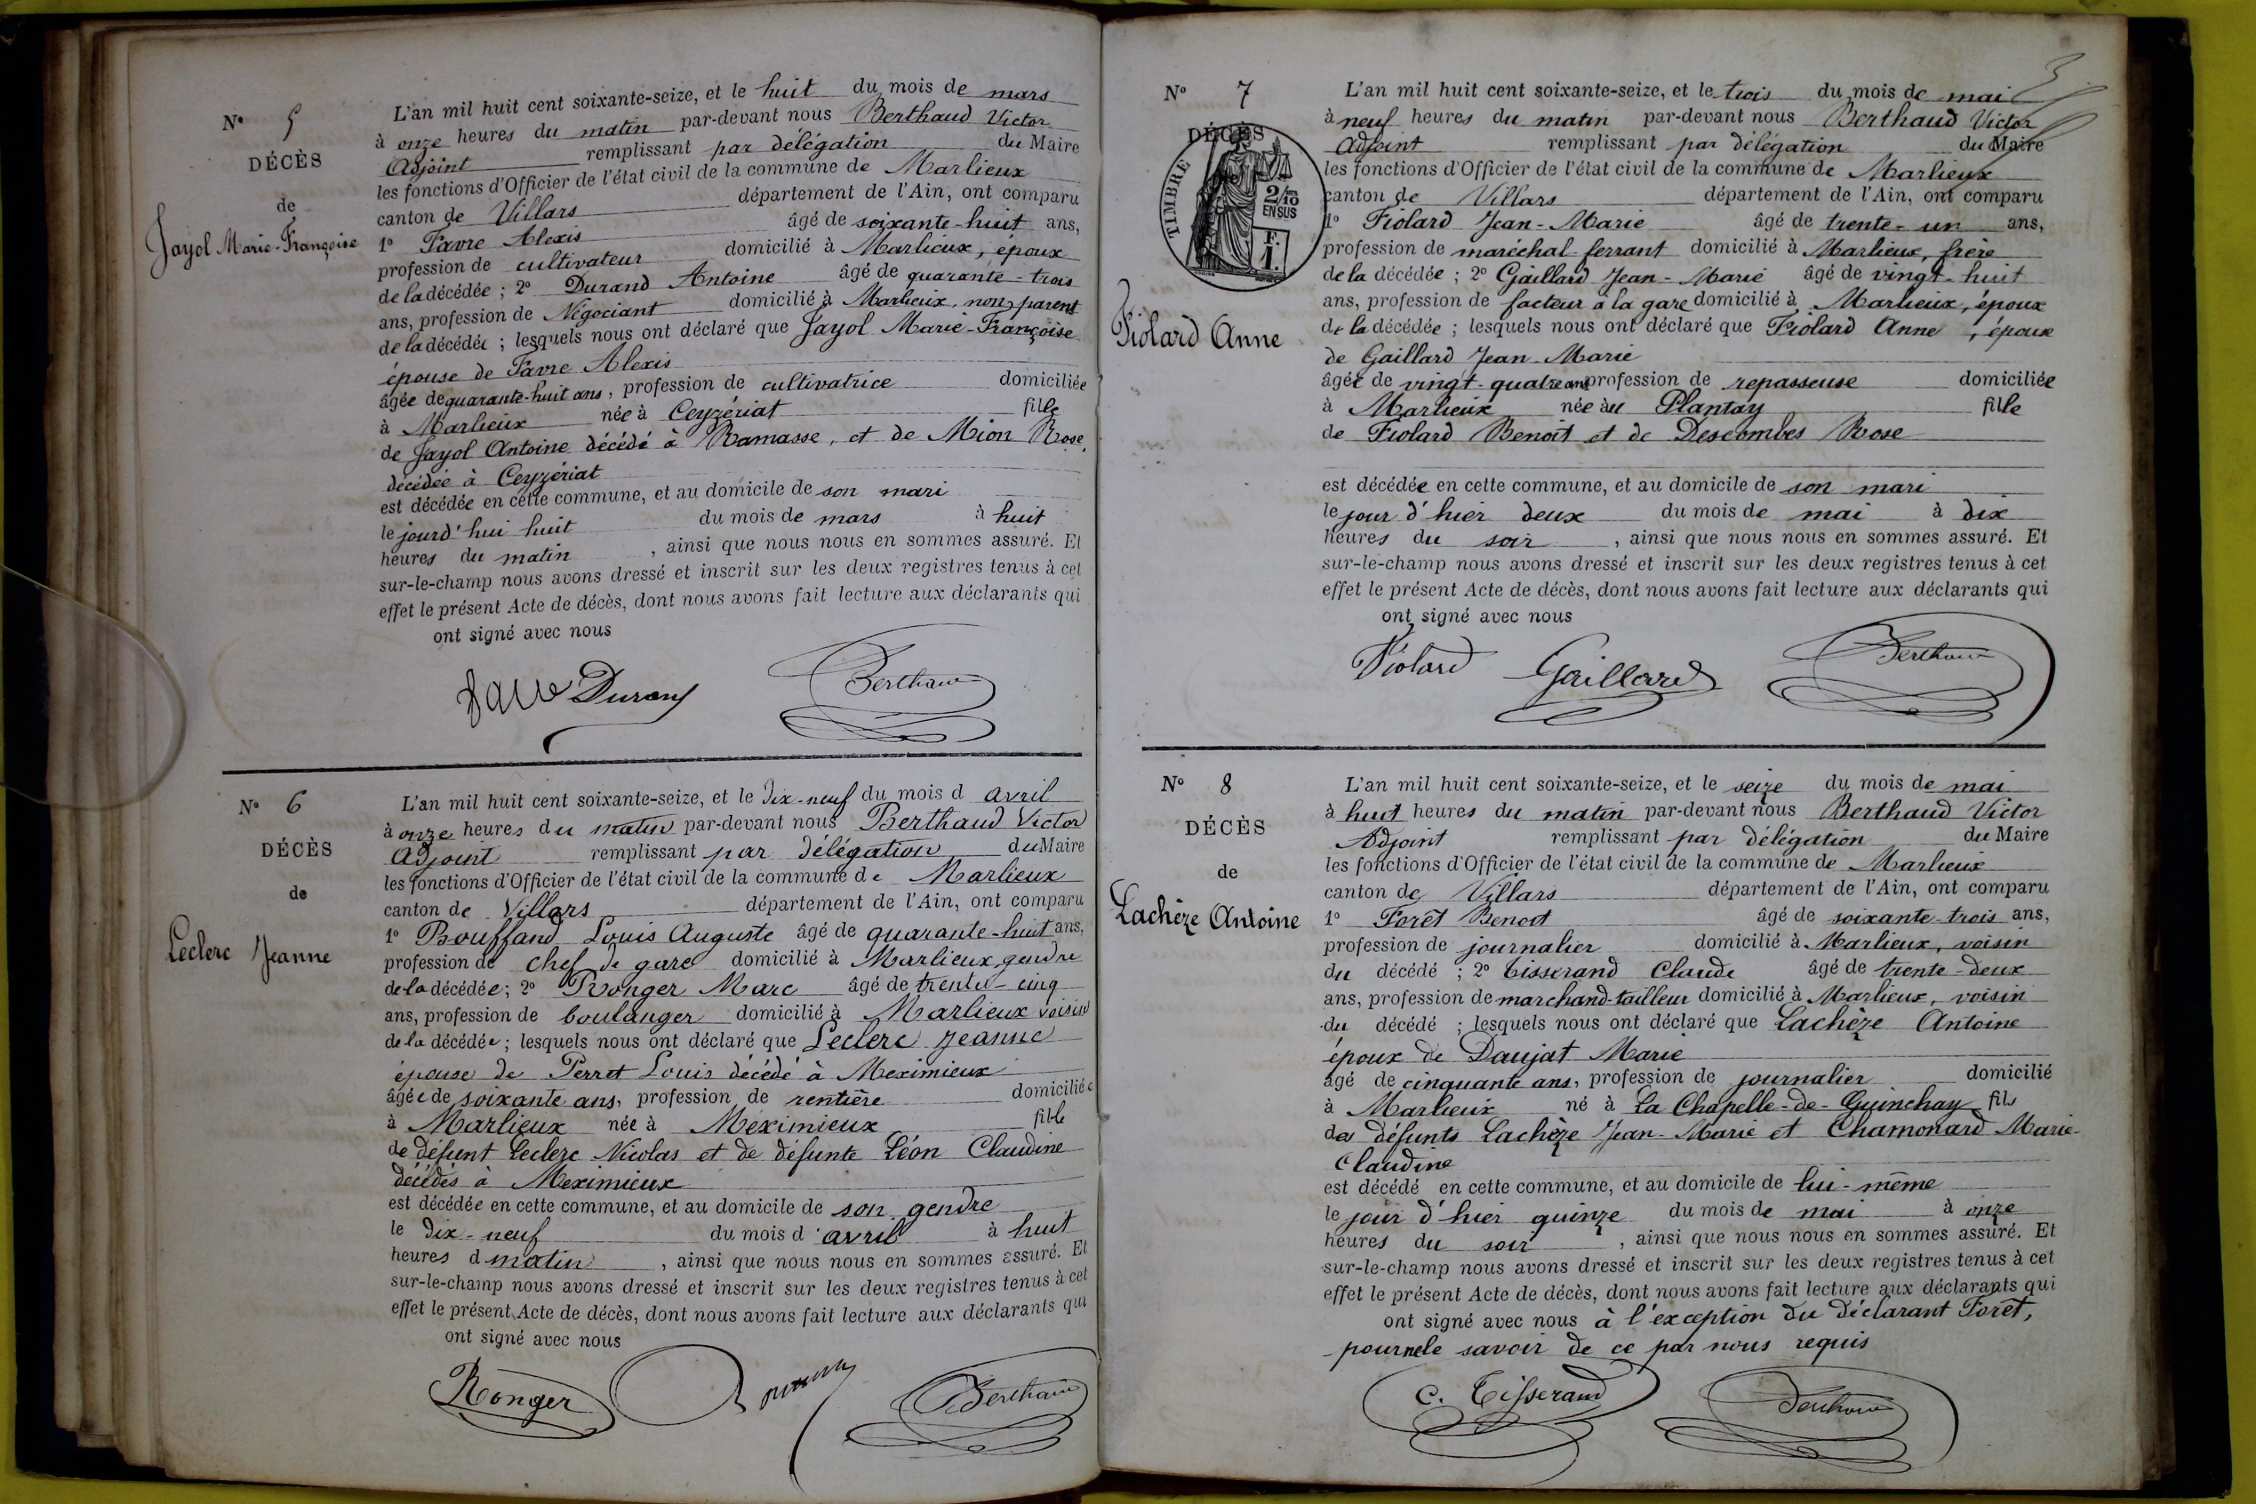 N° 5
DÉCÈS
de
Jayol Marie-Françoise
L'an mil huit cent soixante-seize, et le huit du mois de mars
à onze heures du matin par-devant nous Berthaud Victor
Adjoint remplissant par délégation du Maire
les fonctions d'Officier de l'état civil de la commune de Marlieux
canton de Villars département de l'Ain, ont comparu
1° Favre Alexis âgé de soixante-huit ans,
profession de cultivateur domicilié à Marlieux, époux
de la décédée ; 2° Durand Antoine âgé de quarante-trois
ans, profession de Négociant domicilié à Marlieux, non parent
de la décédée ; lesquels nous ont déclaré que Jayol Marie-Françoise
épouse de Favre Alexis
âgée de quarante-huit ans, profession de cultivatrice domiciliée
à Marlieux née à Ceyzériat fille
de Jayol Antoine décédé à Ramasse, et de Mion Rose,
décédée à Ceyzériat
est décédée en cette commune, et au domicile de son mari
le jourd'hui huit du mois de mars à huit
heures du matin, ainsi que nous nous en sommes assuré. Et
sur-le-champ nous avons dressé et inscrit sur les deux registres tenus à cet
effet le présent Acte de décès, dont nous avons fait lecture aux déclarants qui
ont signé avec nous
Favre Durand Berthaud
N° 6
DÉCÈS
de
Leclerc Jeanne
L'an mil huit cent soixante-seize, et le dix-neuf du mois d avril
à onze heures du matin par-devant nous Berthaud Victor
Adjoint remplissant par délégation du Maire
les fonctions d'Officier de l'état civil de la commune de Marlieux
canton de Villars département de l'Ain, ont comparu
1° Bouffand Louis Auguste âgé de quarante-huit ans,
profession de chef de gare domicilié à Marlieux, gendre
de la décédée ; 2° Ronger Marc âgé de trente-cinq
ans, profession de boulanger domicilié à Marlieux voisin
de la décédée ; lesquels nous ont déclaré que Leclerc Jeanne
épouse de Perret Louis décédé à Meximieux
âgée de soixante ans, profession de rentière domiciliée
à Marlieux née à Méximieux fille
de défunt Leclerc Nicolas et de défunte Léon Claudine
décédés à Meximieux
est décédée en cette commune, et au domicile de son gendre
le dix-neuf du mois d'avril à huit
heures d matin, ainsi que nous nous en sommes assuré. Et
sur-le-champ nous avons dressé et inscrit sur les deux registres tenus à cet
effet le présent Acte de décès, dont nous avons fait lecture aux déclarants qui
ont signé avec nous
Ronger Berthaud
N° 7
DÉCÈS
TIMBRE
2/10
EN SUS
F.
1.
Fiolard Anne
L'an mil huit cent soixante-seize, et le trois du mois de mai
à neuf heures du matin par-devant nous Berthaud Victor
Adjoint remplissant par délégation du Maire
les fonctions d'Officier de l'état civil de la commune de Marlieux
canton de Villars département de l'Ain, ont comparu
1° Fiolard Jean-Marie âgé de trente-un ans,
profession de maréchal ferrant domicilié à Marlieux, frère
de la décédée ; 2° Gaillard Jean-Marie âgé de vingt-huit
ans, profession de facteur à la gare domicilié à Marlieux, époux
de la décédée ; lesquels nous ont déclaré que Fiolard Anne, épouse
de Gaillard Jean-Marie
âgée de vingt-quatre ans profession de repasseuse domiciliée
à Marlieux née au Plantay fille
de Fiolard Benoît et de Descombes Rose
est décédée en cette commune, et au domicile de son mari
le jour d'hier deux du mois de mai à dix
heures du soir, ainsi que nous nous en sommes assuré. Et
sur-le-champ nous avons dressé et inscrit sur les deux registres tenus à cet
effet le présent Acte de décès, dont nous avons fait lecture aux déclarants qui
ont signé avec nous
Fiolard Gaillard Berthaud
N° 8
DÉCÈS
de
Lachèze Antoine
L'an mil huit cent soixante-seize, et le seize du mois de mai
à huit heures du matin par-devant nous Berthaud Victor
Adjoint remplissant par délégation du Maire
les fonctions d'Officier de l'état civil de la commune de Marlieux
canton de Villars département de l'Ain, ont comparu
1° Forêt Benoit âgé de soixante-trois ans,
profession de journalier domicilié à Marlieux, voisin
du décédé ; 2° Tisserand Claude âgé de trente-deux
ans, profession de marchand-tailleur domicilié à Marlieux, voisin
du décédé ; lesquels nous ont déclaré que Lachèze Antoine
époux de Daujat Marie
âgé de cinquante ans, profession de journalier domicilié
à Marlieux né à La Chapelle-de-Guinchay fils
des défunts Lachèze Jean-Marie et Chamonard Marie-
Claudine
est décédé en cette commune, et au domicile de lui-même
le jour d'hier quinze du mois de mai à onze
heures du soir, ainsi que nous nous en sommes assuré. Et
sur-le-champ nous avons dressé et inscrit sur les deux registres tenus à cet
effet le présent Acte de décès, dont nous avons fait lecture aux déclarants qui
ont signé avec nous à l'exception du déclarant Forêt,
pour ne le savoir de ce par nous requis
C. Tisserand Berthaud